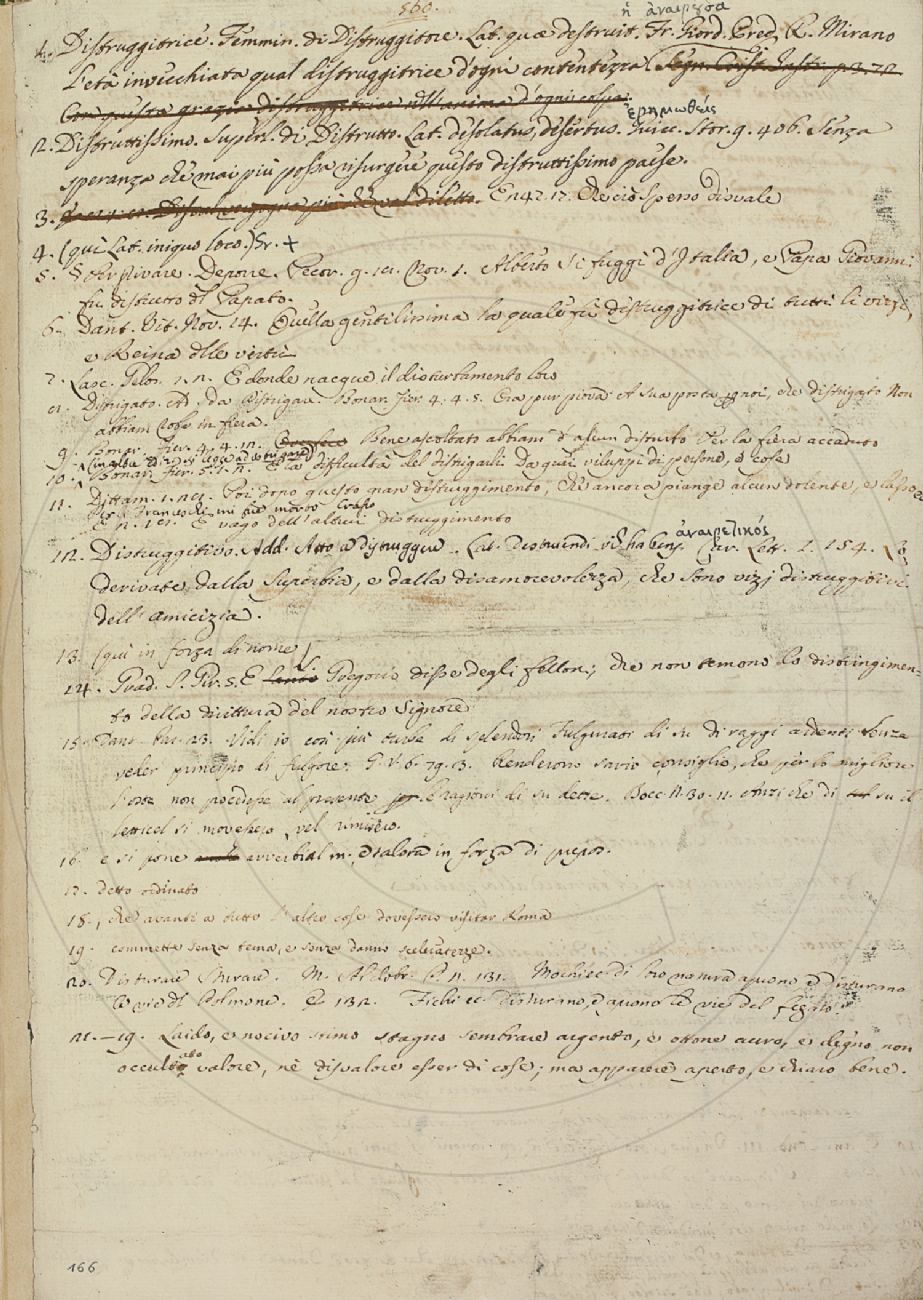 560.
ἡ ἀναιρέσα
1. Distruggitrice. Femmin. di Distruggitore. Lat. quæ destruit. Fr. Giord. Pred. R. Mirano
l'età invecchiata qual distruggitrice d'ogni contentezza. Segn. Crist. Instr.
Con questa grazia distruggitrice d'ogni colpa.
ἐρημωθείς
2. Distruttissimo. Superl. di Distrutto. Lat. desolatus, desertus. Guicc. Stor. 9. 406. Senza
speranza che mai più possa risurgere questo distruttissimo paese.
3. che ciò spesso disvale
4. (qui Lat. iniquo loco.) Gr. +
5. Per Privare. Deporre. Pecor. g. Nov. 1. Alberto si fuggì d'Italia, e Papa Giovanni
fu distrutto del Papato.
6. Dant. Vit. Nov. 14. Quella gentilissima la quale fu distruggitrice di tutti li vizj,
e Reina delle virtù
7. Lasc. Gelos. E donde nacque il disturbamento loro
Distrigato. Add. da Distrigare. Buonar. Fier. 4. 4. 5. Ora pur piova a sua posta ognor, che distrigato non
abbiam cose in fiera.
9. Bonar. Fier. 4. 4. Bene ascoltato abbiam d'alcun disturbo per la fiera accaduto
10. Bonar. Fier. 5. E la difficultà del distrigarsi da quei viluppi di persone, e cose
11. Dittam. 1. Poi dopo questo gran distruggimento, che ancora piange alcun dolente, e
E vago dell'altrui distruggimento
ἀναιρετικός
12. Distruggitivo. Add. Atto a distruggere. Lat. destruendi vim habens. Car. Lett. 1. 154.
derivate dalla superbia, e dalla disamorevolezza, che sono vizj distruggitivi
dell'amicizia.
13. (qui in forza di nome)
14. Quad. S. Gir. S. E S. Gregorio disse degli felloni, che non temono lo distringimen-
to della dirittura del nostro Signore
15. Dant. Par. 23. Vidi io così più turbe di splendori Fulgurati di su di raggi ardenti Senza
veder principio di fulgori. G. V. 6. 79. 3. Renderono savio consiglio, che per lo migliore
l'oste non procedesse al presente per le ragioni di su dette. Bocc. Anzi che di su il
letticel si movessero
16. e si pone avverbial m. e talora in forza di prepos.
17. detto ordinato
18. , che avanti a tutte l'altre cose dovessero visitar Roma
19. commette senza tema, e senza danno scelleratezze.
20. Disturare Sturare. M. Aldobr. P. N. 131. di loro natura aprono e disturano
le vie del Polmone. E 132. Fichi ec. disturano, e aprono le vie del fegato.
21. – 19. Laido, e nocivo stimo stagno sembrare argento, e ottone auro, e degno non
occultato valore, nè disvalore esser di cose; ma apparere aperto, e chiaro bene.
166